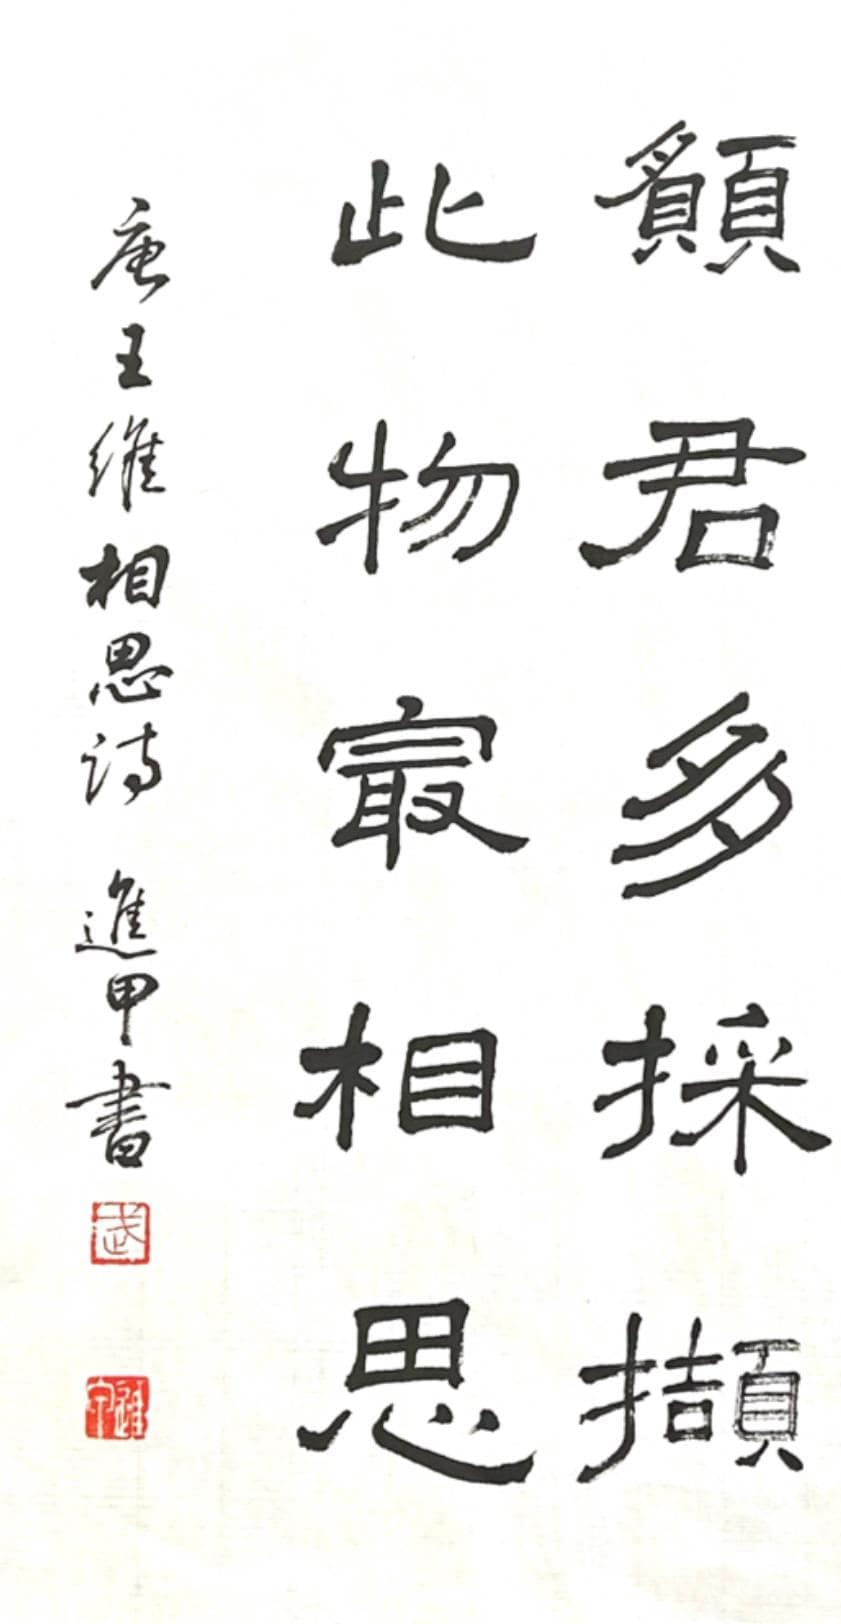 願君多採擷
此物㝡相思
唐王維相思詩 進甲書
武